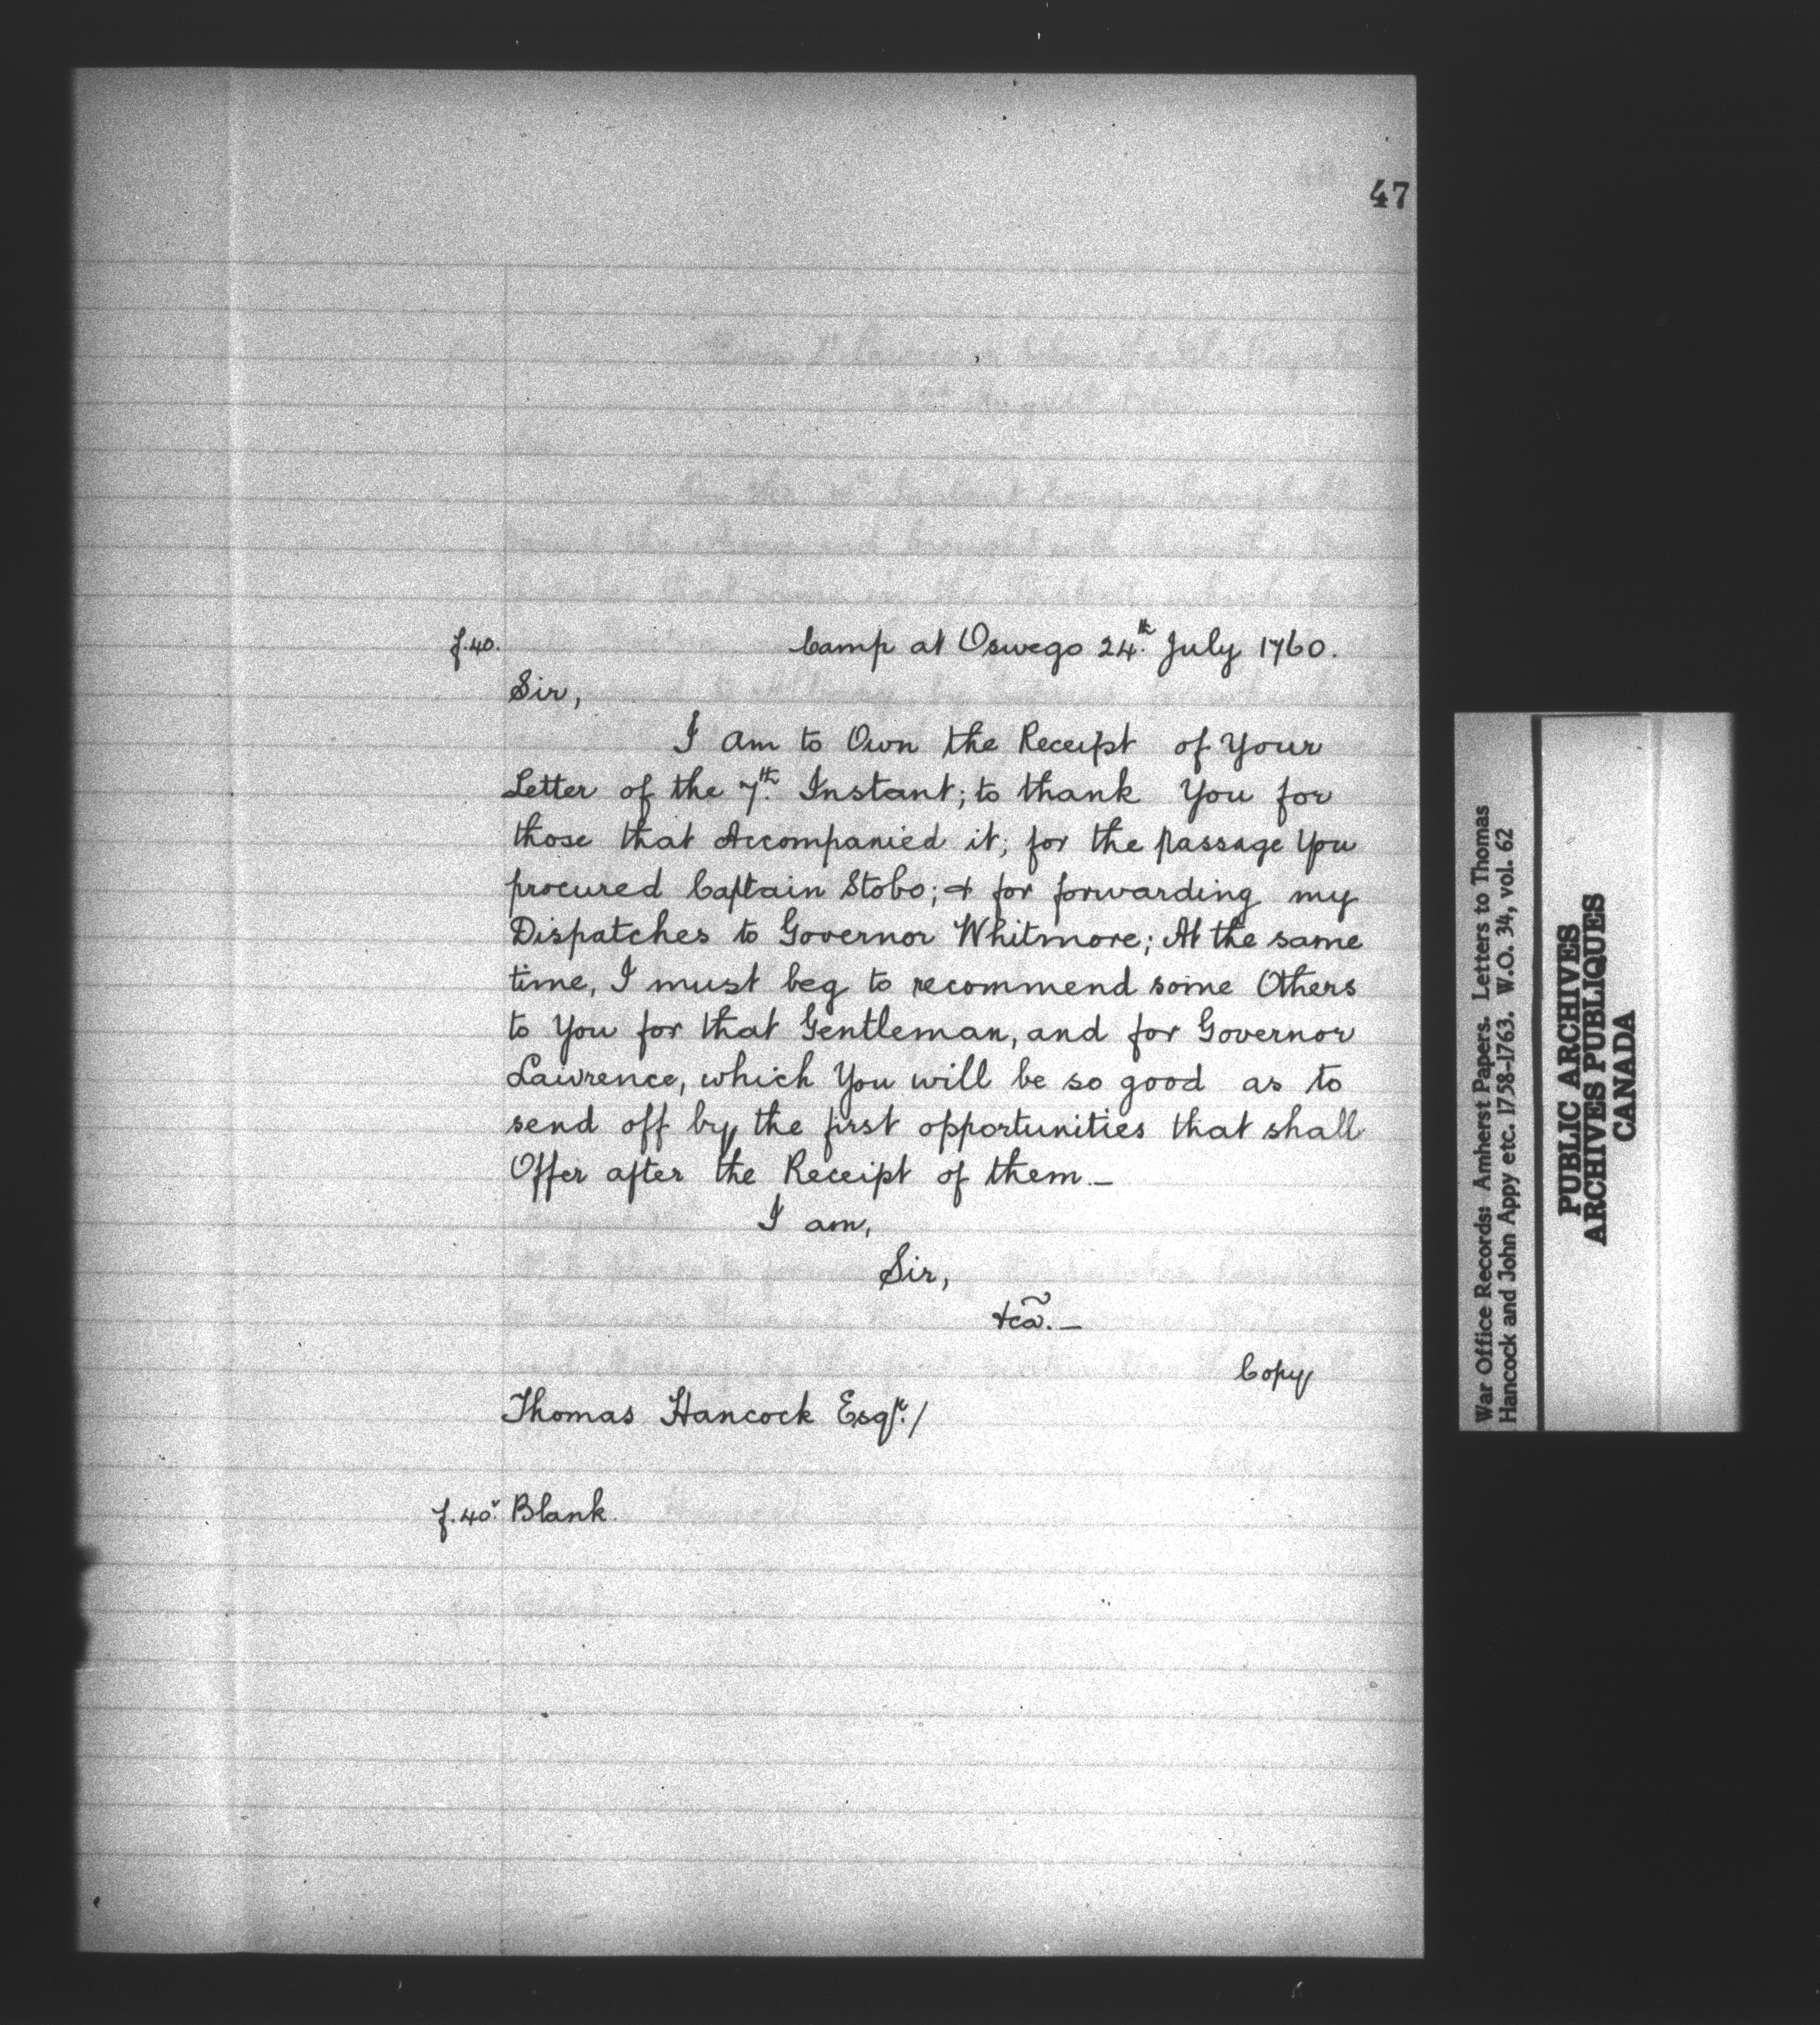 47
f.40.
Camp at Oswego 24.th July 1760.
Sir,
I am to Own the Receipt of Your
Letter of the 7.th Instant; to thank You for
those that Accompanied it; for the passage You
procured Captain Stobo; & for forwarding my
Dispatches to Governor Whitmore; At the same
time, I must beg to recommend some Others
to You for that Gentleman, and for Governor
Lawrence, which You will be so good as to
send off by the first opportunities that shall
Offer after the Receipt of them._
I am,
Sir,
&ca._
Copy
Thomas Hancock Esqr./
f.40v. Blank.
War Office Records: Amherst Papers. Letters to Thomas
Hancock and John Appy etc. 1758-1763. W.O. 34, vol. 62
PUBLIC ARCHIVES
ARCHIVES PUBLIQUES
CANADA